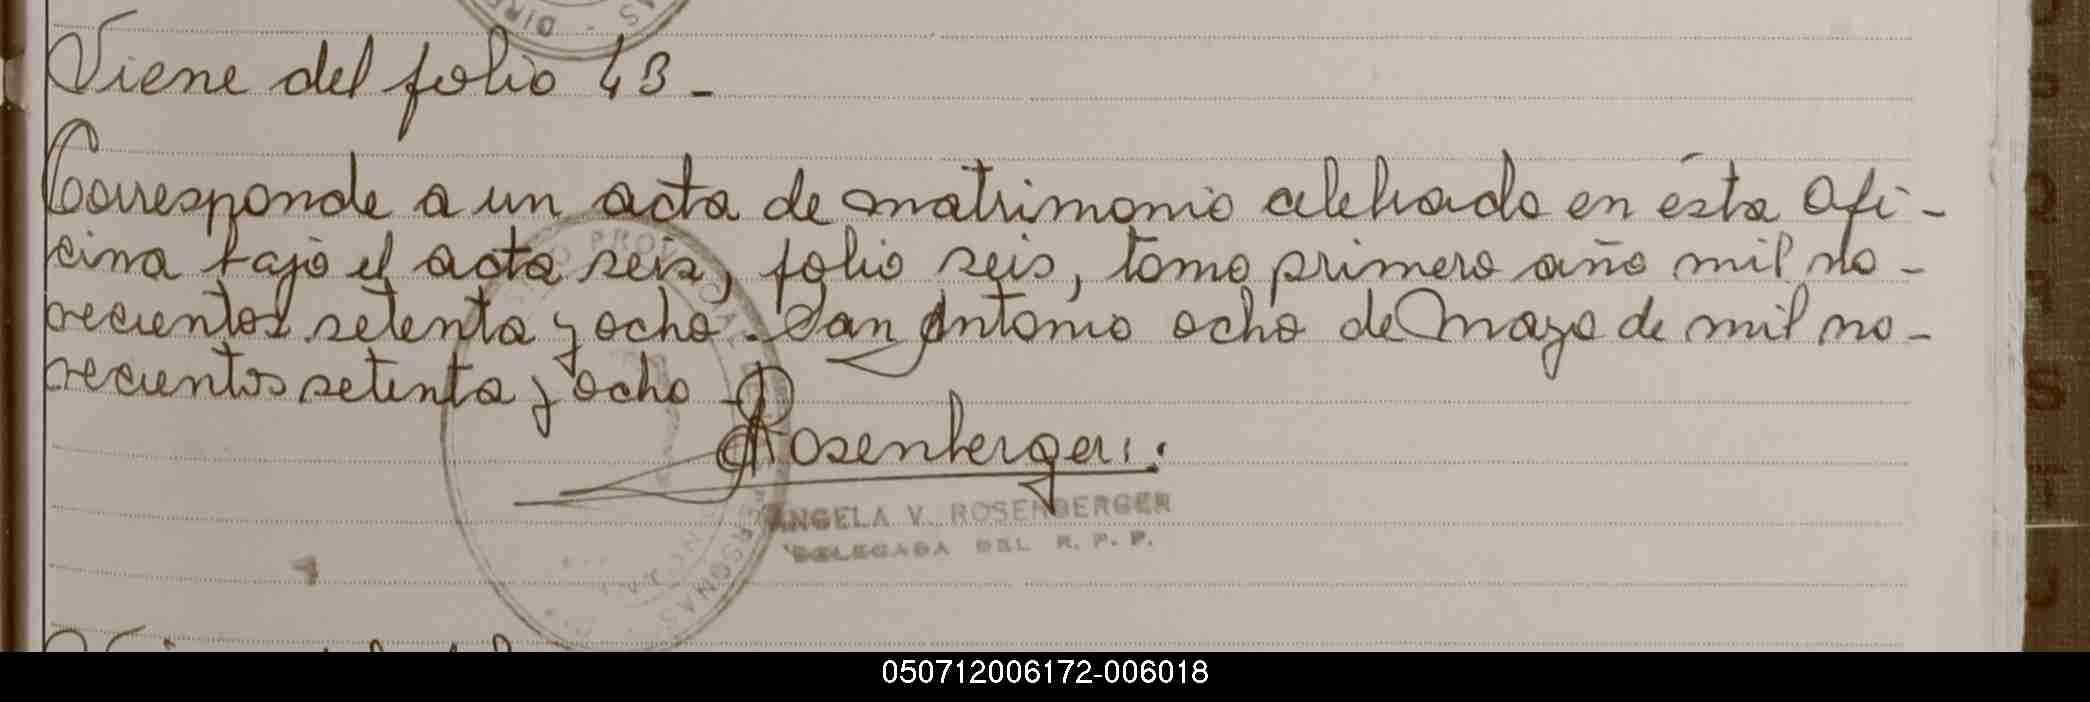 Viene del folio 43.-
Corresponde a un acta de matrimonio celebrado en ésta Ofi-
cina bajo el acta seis, folio seis, tomo primero año mil no-
vecientos setenta y ocho. San Antonio ocho de Mayo de mil no-
vecientos setenta y ocho.-
Rosenberger
ANGELA V. ROSENBERGER
DELEGADA DEL R. P. P.
050712006172-006018